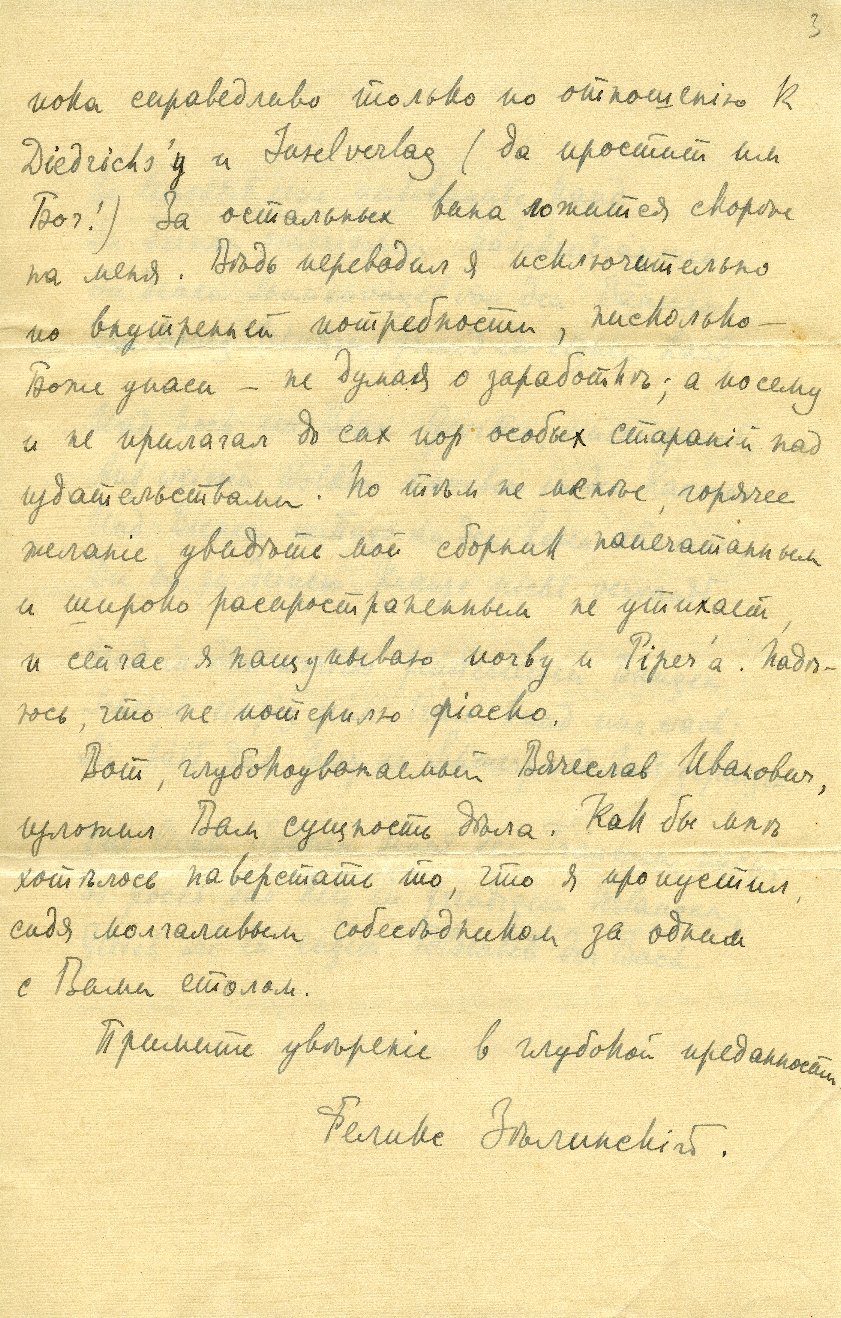 3
пока справедливо только по отношенію к
Diedrichs'у и Inselverlag (да простит им
Бог!) За остальных вина ложится скорѣе
на меня. Вѣдь переводил я исключительно
по внутренней потребности, нисколько –
Боже упаси – не думая о заработкѣ; а посему
и не прилагал до сих пор особых стараній над
издательствами. Но тѣм не менѣе, горячее
желаніе увидѣть мой сборник напечатанным
и широко распространенным не утихает,
и сейчас я нащупываю почву и Piper'а. Надѣ-
юсь, что не потерплю фіаско.
Вот, глубокоуважаемый Вячеслав Иванович,
изложил Вам сущность дѣла. Как бы мнѣ
хотѣлось наверстать то, что я пропустил,
сидя молчаливым собесѣдником за одним
с Вами столом.
Примите увѣреніе в глубокой преданности
Феликс Зѣлинскій.